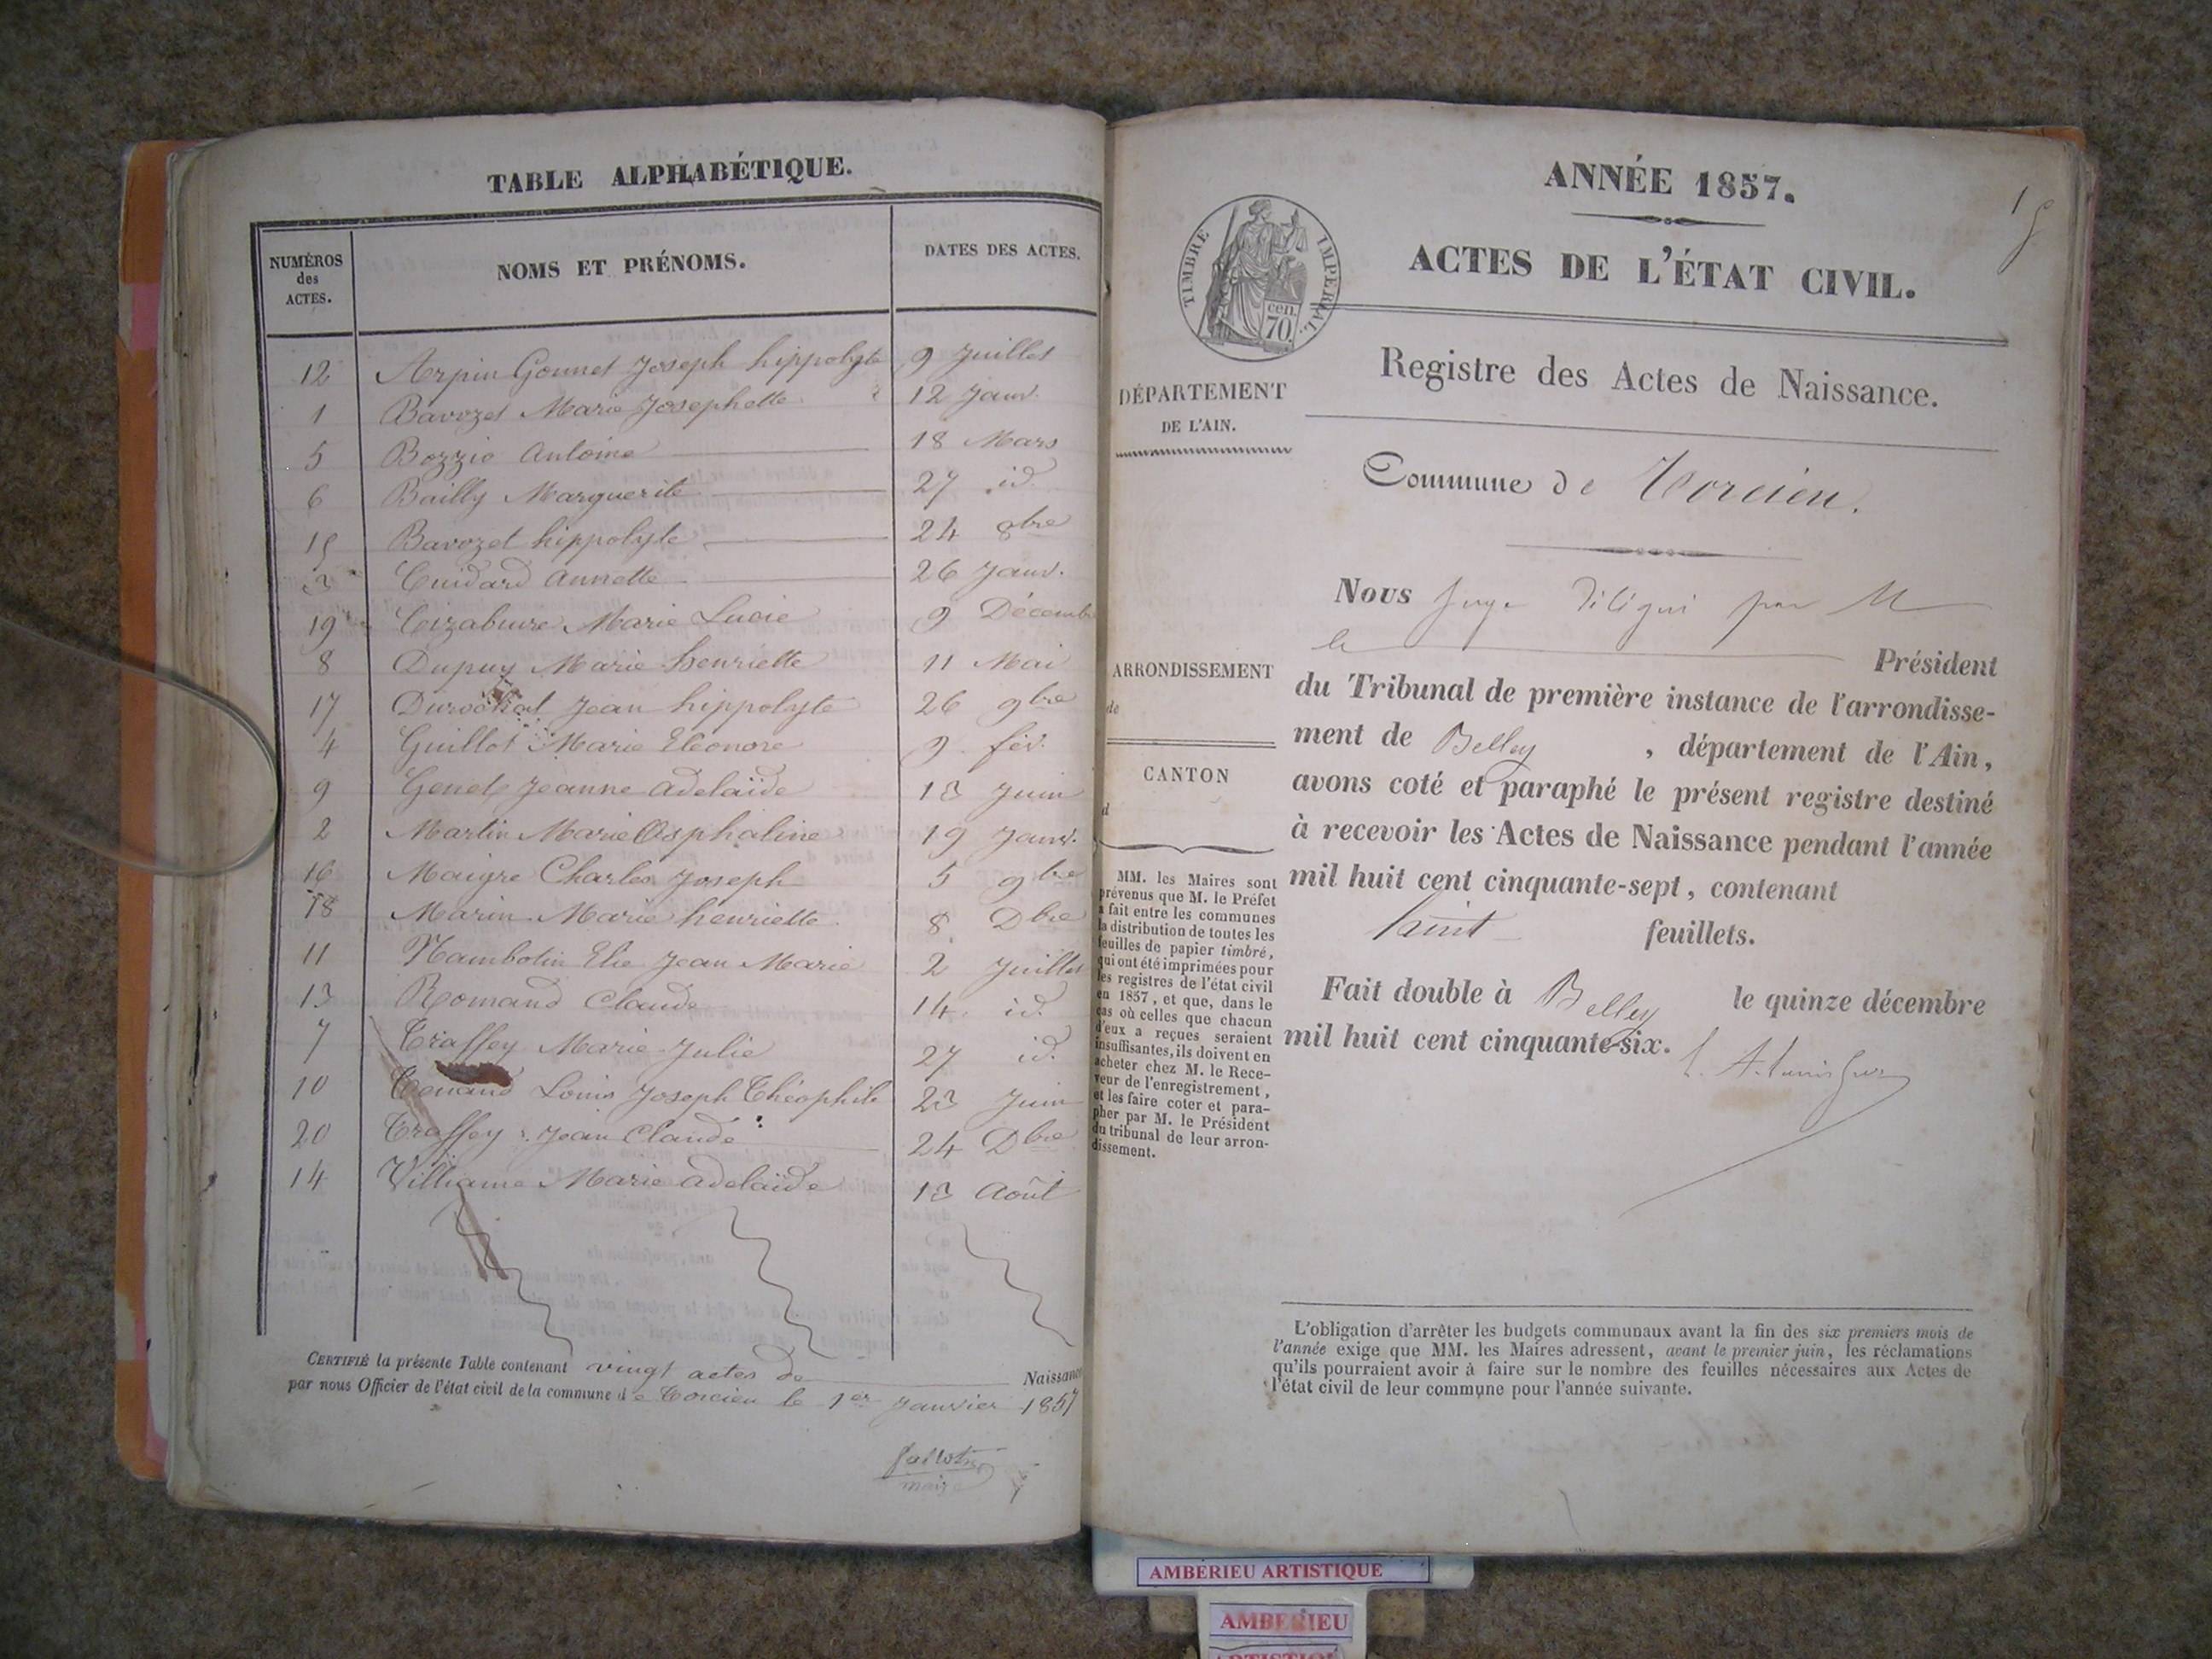 TABLE ALPHABÉTIQUE.
NUMÉROS des ACTES. NOMS ET PRÉNOMS. DATES DES ACTES.
12 Arpin Gonnet Joseph hippolyte 9 Juillet
1 Bavozet Marie Josephette 12 Janv.
5 Bozzio Antoine 18 Mars
6 Bailly Marguerite 27 id.
15 Bavozet hippolyte 24 8bre
3 Cuidard Annette 26 Janv.
19 Marie Lucie 9 Décembre
8 Dupuy Marie henriette 11 Mai
17 Durochat Jean hippolyte 26 9bre
4 Guillot Marie Eléonore 9 fév.
9 Genet Jeanne adelaïde 13 Juin
2 Martin Marie 19 Janv.
16 Maigre Charles Joseph 5 9bre
18 Marin Marie henriette 8 Dbre
11 Nambotin Elie Jean Marie 2 Juillet
13 Romand Claude 14 id.
7 Traffey Marie Julie 27 id.
10 Louis Joseph Théophile 23 Juin
20 Traffey Jean Claude 24 Dbre
14 Villiame Marie adelaïde 13 Août
CERTIFIÉ la présente Table contenant vingt actes de Naissance
par nous Officier de l'état civil de la commune de Torcieu le 1er Janvier 1857
maire
ANNÉE 1857.
ACTES DE L'ÉTAT CIVIL.
TIMBRE IMPÉRIAL.
cen.
70.
Registre des Actes de Naissance.
DÉPARTEMENT
DE L'AIN.
Commune de Torcieu.
Nous Juge délégué par M
le Président
du Tribunal de première instance de l'arrondisse-
ment de Belley, département de l'Ain,
avons coté et paraphé le présent registre destiné
à recevoir les Actes de Naissance pendant l'année
mil huit cent cinquante-sept, contenant
feuillets.
Fait double à Belley le quinze décembre
mil huit cent cinquante-six.
ARRONDISSEMENT
de
CANTON
d
MM. les Maires sont
prévenus que M. le Préfet
a fait entre les communes
la distribution de toutes les
feuilles de papier timbré,
qui ont été imprimées pour
les registres de l'état civil
en 1857, et que, dans le
cas où celles que chacun
d'eux a reçues seraient
insuffisantes, ils doivent en
acheter chez M. le Rece-
veur de l'enregistrement,
et les faire coter et para-
pher par M. le Président
du tribunal de leur arron-
dissement.
L'obligation d'arrêter les budgets communaux avant la fin des six premiers mois de
l'année exige que MM. les Maires adressent, avant le premier juin, les réclamations
qu'ils pourraient avoir à faire sur le nombre des feuilles nécessaires aux Actes de
l'état civil de leur commune pour l'année suivante.
AMBERIEU ARTISTIQUE
AMBERIEU
ARTISTIQUE